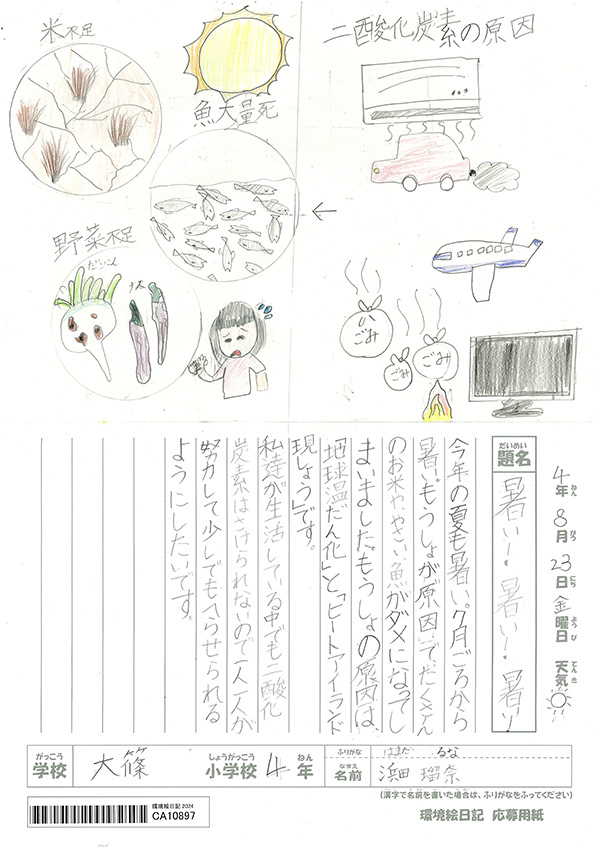 二酸化炭素の原因
米不足
魚大量死
野菜不足
だいこん
ナス
ごみ
ごみ
ごみ
4年 8月 23日 金曜日 天気
ねん がつ にち ようび てんき
だいめい
題名
暑いー!暑いー!暑いー!
今年の夏も暑い。7月ごろから
暑い。もうしょが原因で、たくさん
のお米や、やさい、魚がダメになってし
まいました。もうしょの原因は、
「地球温だん化」と「ヒートアイランド
現しょう」です。
私達が生活している中でも二酸化
炭素はさけられないので一人一人が
努力して少しでもへらせられる
ようにしたいです。
がっこう
学校
大篠
しょうがっこう
小学校
4
ねん
年
ふりがな
はまだ るな
なまえ
名前
浜田 瑠奈
(漢字で名前を書いた場合は、ふりがなをふってください)
環境絵日記 2024
CA10897
環境絵日記 応募用紙